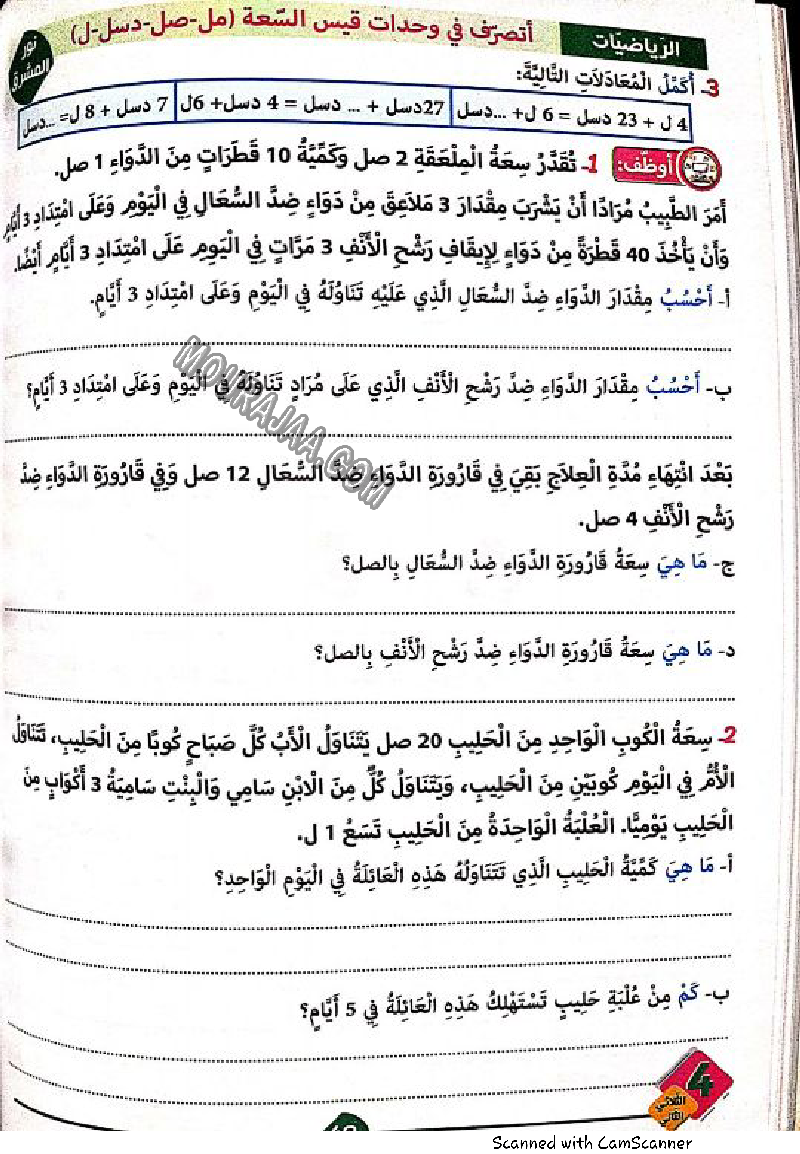 الرياضيات
أتصرّف في وحدات قيس السّعة (مل-صل-دسل-ل)
نور المشرق
3- أُكَمِّلُ الْمُعَادَلَاتِ التَّالِيَّةَ:
4 ل + 23 دسل = 6 ل+ ...دسل
27دسل + ... دسل = 4 دسل+ 6ل
7 دسل + 8 ل= ...دسل
أوظّف: 1- تُقَدَّرُ سِعَةُ الْمِلْعَقَةِ 2 صل وَكَمِّيَّةُ 10 قَطَرَاتٍ مِنَ الدَّوَاءِ 1 صل.
أَمَرَ الطَّبِيبُ مُرَادًا أَنْ يَشْرَبَ مِقْدَارَ 3 مَلَاعِقَ مِنْ دَوَاءٍ ضِدَّ السُّعَالِ فِي الْيَوْمِ وَعَلَى امْتِدَادِ 3 أَيَّامٍ
وَأَنْ يَأْخُذَ 40 قَطْرَةً مِنْ دَوَاءٍ لِإِيقَافِ رَشْحِ الْأَنْفِ 3 مَرَّاتٍ فِي الْيَوْمِ عَلَى امْتِدَادِ 3 أَيَّامٍ أَيْضًا.
أ- أَحْسُبُ مِقْدَارَ الدَّوَاءِ ضِدَّ السُّعَالِ الَّذِي عَلَيْهِ تَنَاوُلَهُ فِي الْيَوْمِ وَعَلَى امْتِدَادِ 3 أَيَّامٍ.
ب- أَحْسُبُ مِقْدَارَ الدَّوَاءِ ضِدَّ رَشْحِ الْأَنْفِ الَّذِي عَلَى مُرَادٍ تَنَاوُلَهُ فِي الْيَوْمِ وَعَلَى امْتِدَادِ 3 أَيَّامٍ؟
بَعْدَ انْتِهَاءِ مُدَّةِ الْعِلَاجِ بَقِيَ فِي قَارُورَةِ الدَّوَاءِ ضِدَّ السُّعَالِ 12 صل وَفِي قَارُورَةِ الدَّوَاءِ ضِدَّ
رَشْحِ الْأَنْفِ 4 صل.
ج- مَا هِيَ سِعَةُ قَارُورَةِ الدَّوَاءِ ضِدَّ السُّعَالِ بِالصل؟
د- مَا هِيَ سِعَةُ قَارُورَةِ الدَّوَاءِ ضِدَّ رَشْحِ الْأَنْفِ بِالصل؟
2- سِعَةُ الْكُوبِ الْوَاحِدِ مِنَ الْحَلِيبِ 20 صل يَتَنَاوَلُ الْأَبُ كُلَّ صَبَاحٍ كُوبًا مِنَ الْحَلِيبِ، تَتَنَاوَلُ
الْأُمُّ فِي الْيَوْمِ كُوبَيْنِ مِنَ الْحَلِيبِ، وَيَتَنَاوَلُ كُلٌّ مِنَ الْابْنِ سَامِي وَالْبِنْتِ سَامِيَةُ 3 أَكْوَابٍ مِنَ
الْحَلِيبِ يَوْمِيًّا. الْعُلْبَةُ الْوَاحِدَةُ مِنَ الْحَلِيبِ تَسَعُ 1 ل.
أ- مَا هِيَ كَمِّيَّةُ الْحَلِيبِ الَّذِي تَتَنَاوَلُهُ هَذِهِ الْعَائِلَةُ فِي الْيَوْمِ الْوَاحِدِ؟
ب- كَمْ مِنْ عُلْبَةِ حَلِيبٍ تَسْتَهْلِكُ هَذِهِ الْعَائِلَةُ فِي 5 أَيَّامٍ؟
4
الثلاثي
الثاني
MOURAJAA.COM
Scanned with CamScanner